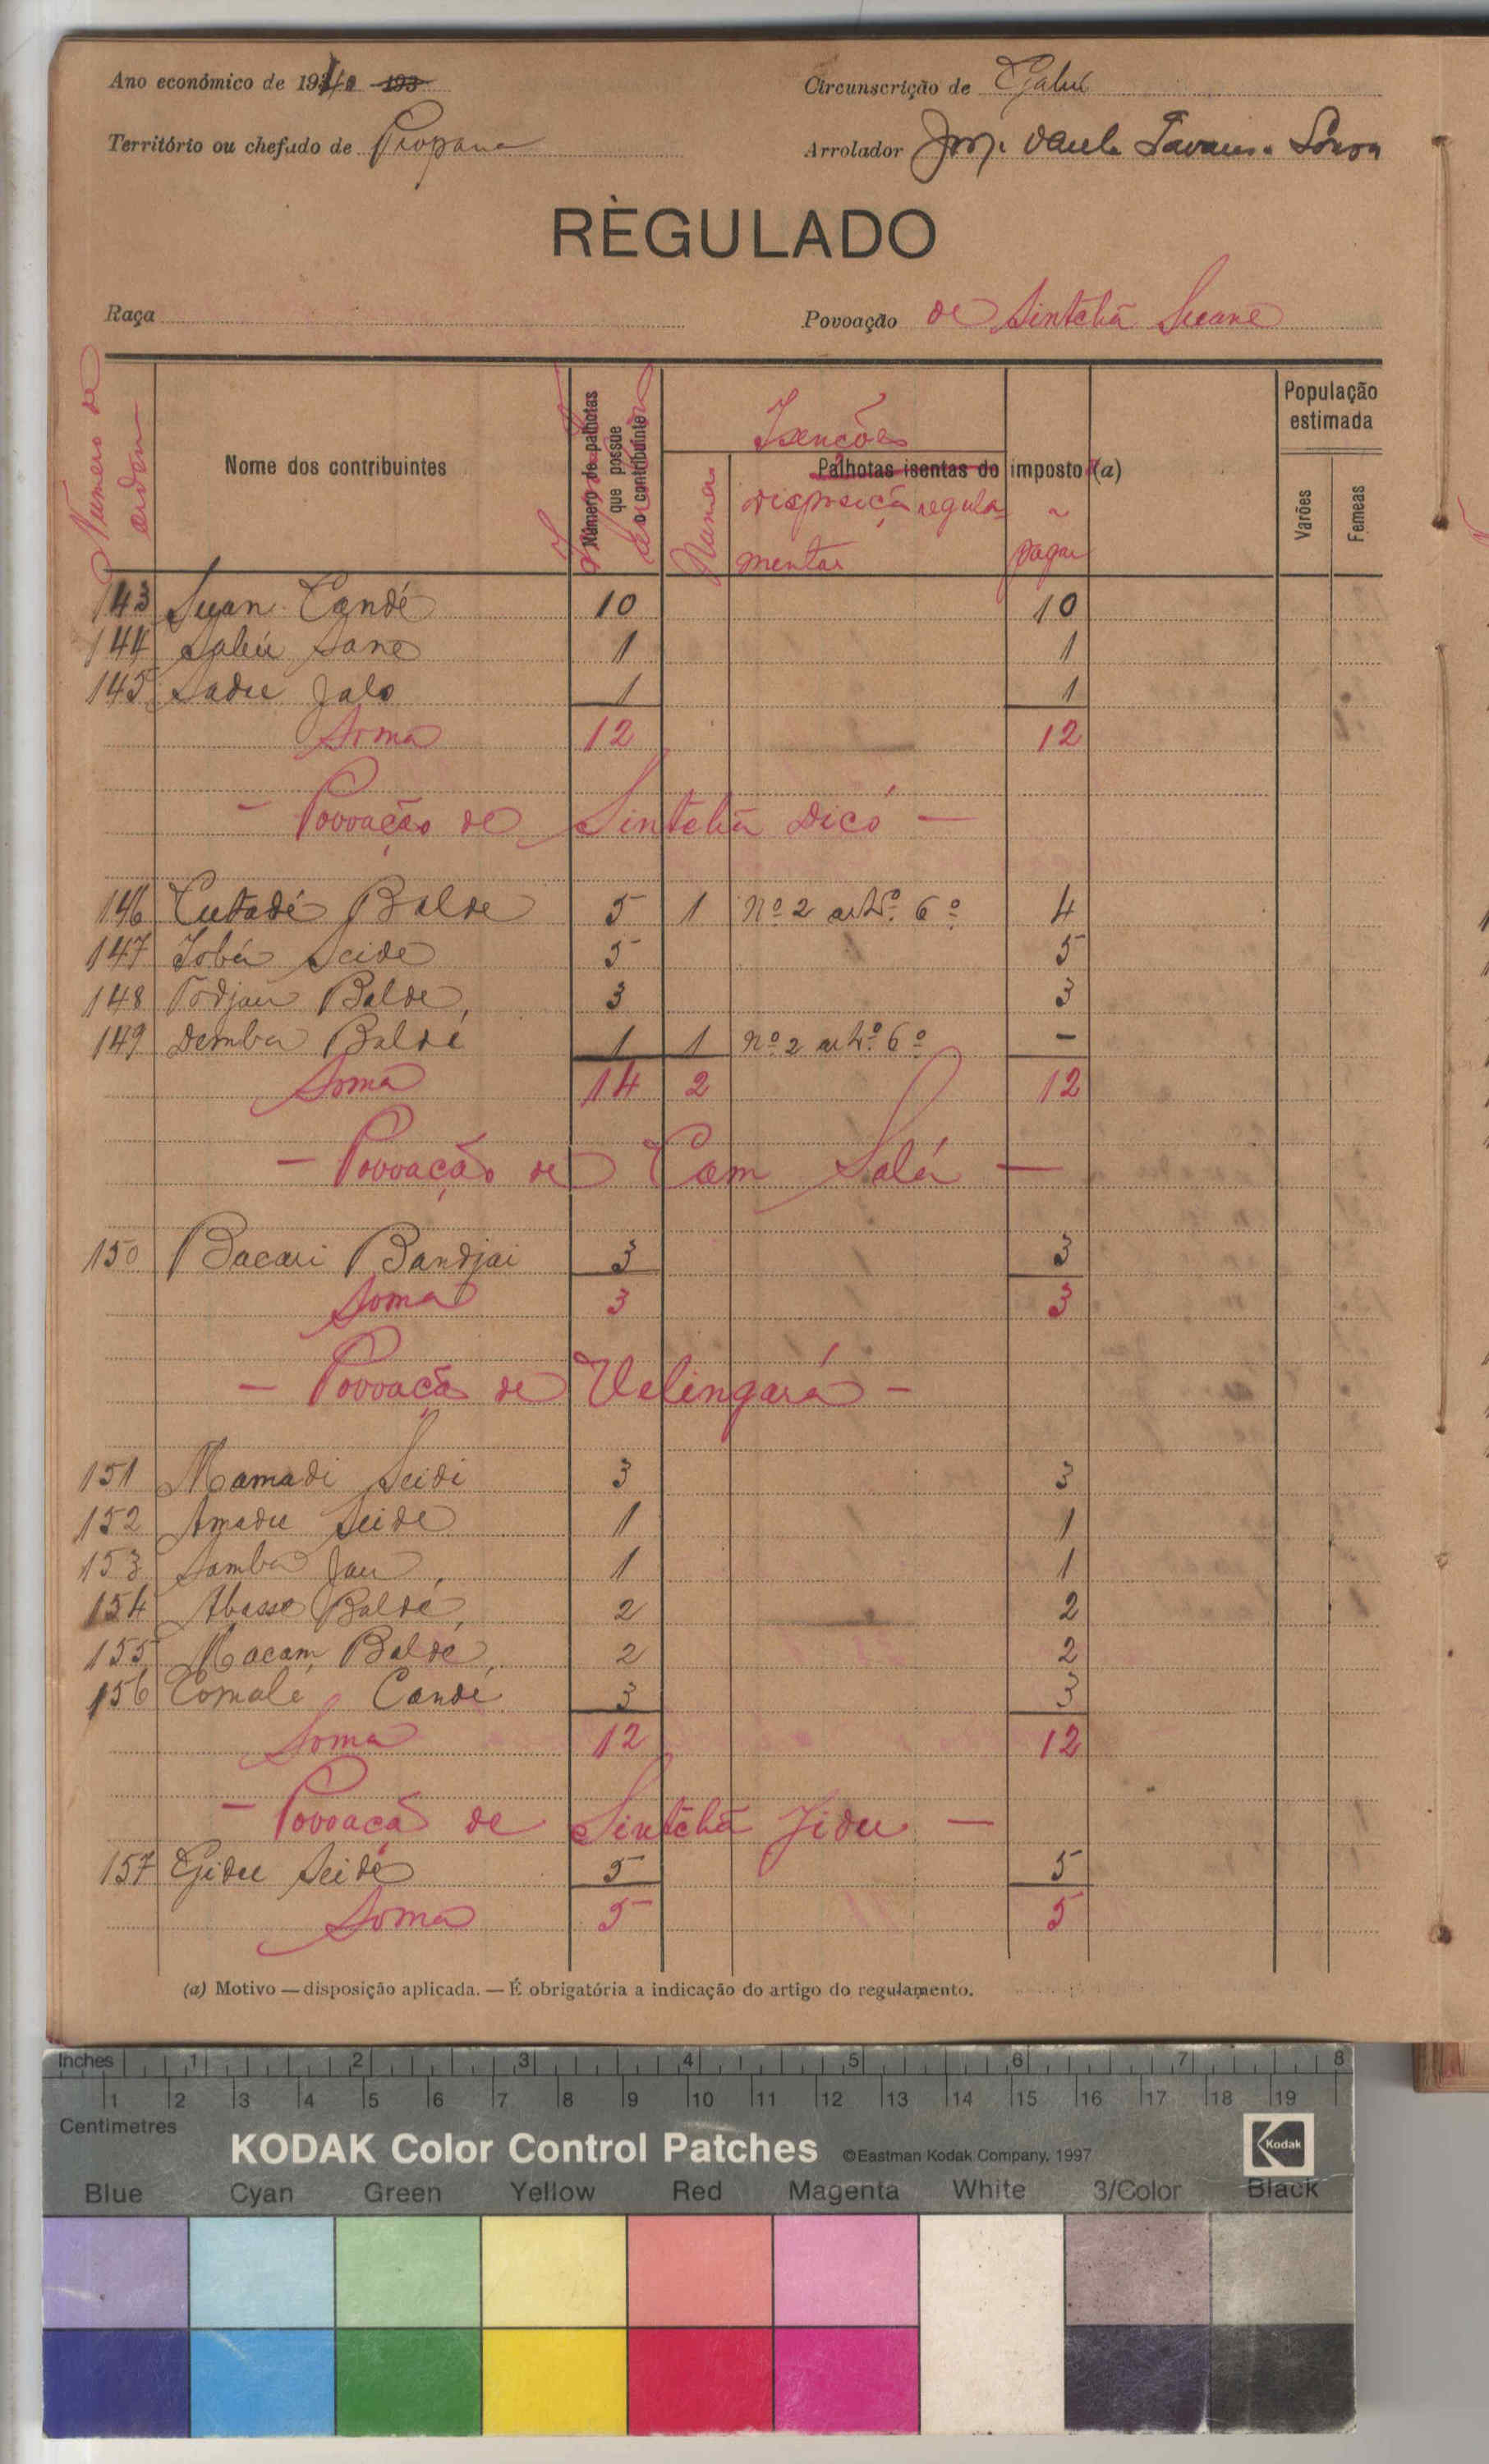 Ano económico de 1940 193
Circunscrição de Gabú
Território ou chefado de Propana
Arrolador Tavares Sousa
RÈGULADO
Raça
Povoação de Sintchã Sucane
Numero de ordem
Nome dos contribuintes
Número de palhotas que possúe o contribuinte
Isenções
Palhotas isentas do imposto (a)
disposição regulamentar
pagar
População estimada
Varões
Femeas
143 Suan Candé 10 10
144 Saliú Sane 1 1
145 Sadu Jalo 1 1
Soma 12 12
- Povoação de Sintchã Dicó -
146 Cutadé Balde 5 1 nº 2 artº. 6º 4
147 Iobá Seide 5 5
148 Todjan Balde 3 3
149 Demba Baldé 1 1 nº 2 artº 6º -
Soma 14 2 12
- Povoação de Cam Salá -
150 Bacari Bandjai 3 3
Soma 3 3
- Povoação de Velingará -
151 Mamadi Seidi 3 3
152 Amadu Seide 1 1
153 Samba Jau 1 1
154 Abasse Baldé 2 2
155 Macam Baldé 2 2
156 Comalé Candé 3 3
Soma 12 12
- Povoação de Sintchã Jidu -
157 Gidu Seidé 5 5
Soma 5 5
(a) Motivo — disposição aplicada. — É obrigatória a indicação do artigo do regulamento.
Inches 1 2 3 4 5 6 7 8
1 2 3 4 5 6 7 8 9 10 11 12 13 14 15 16 17 18 19
Centimetres
KODAK Color Control Patches ©Eastman Kodak Company, 1997 Kodak
Blue Cyan Green Yellow Red Magenta White 3/Color Black